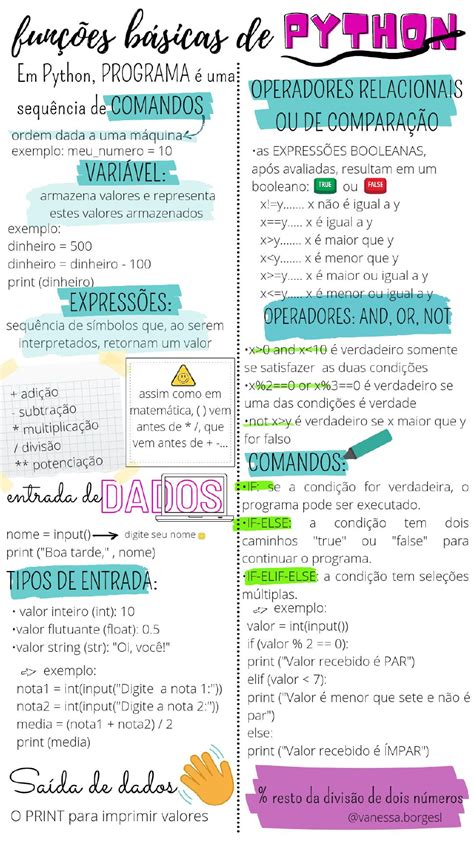 funções básicas de PYTHON
Em Python, PROGRAMA é uma
sequência de COMANDOS
ordem dada a uma máquina
exemplo: meu_numero = 10
VARIÁVEL:
armazena valores e representa
estes valores armazenados
exemplo:
dinheiro = 500
dinheiro = dinheiro - 100
print (dinheiro)
EXPRESSÕES:
sequência de símbolos que, ao serem
interpretados, retornam um valor
+ adição
- subtração
* multiplicação
/ divisão
** potenciação
assim como em
matemática, ( ) vem
antes de * /, que
vem antes de + -...
entrada de DADOS
nome = input() digite seu nome
print ("Boa tarde," , nome)
TIPOS DE ENTRADA:
•valor inteiro (int): 10
•valor flutuante (float): 0.5
•valor string (str): "Oi, você!"
exemplo:
nota1 = int(input("Digite a nota 1:"))
nota2 = int(input("Digite a nota 2:"))
media = (nota1 + nota2) / 2
print (media)
Saída de dados
O PRINT para imprimir valores
OPERADORES RELACIONAIS
OU DE COMPARAÇÃO
•as EXPRESSÕES BOOLEANAS,
após avaliadas, resultam em um
booleano: TRUE ou FALSE
x!=y...... x não é igual a y
x==y..... x é igual a y
x>y....... x é maior que y
x<y....... x é menor que y
x>=y..... x é maior ou igual a y
x<=y..... x é menor ou igual a y
OPERADORES: AND, OR, NOT
•x>0 and x<10 é verdadeiro somente
se satisfazer as duas condições
•x%2==0 or x%3==0 é verdadeiro se
uma das condições é verdade
•not x>y é verdadeiro se x maior que y
for falso
COMANDOS:
•IF: se a condição for verdadeira, o
programa pode ser executado.
•IF-ELSE: a condição tem dois
caminhos "true" ou "false" para
continuar o programa.
•IF-ELIF-ELSE: a condição tem seleções
múltiplas.
exemplo:
valor = int(input())
if (valor % 2 == 0):
print ("Valor recebido é PAR")
elif (valor < 7):
print ("Valor é menor que sete e não é
par")
else:
print ("Valor recebido é ÍMPAR")
% resto da divisão de dois números
@vanessa.borgesl